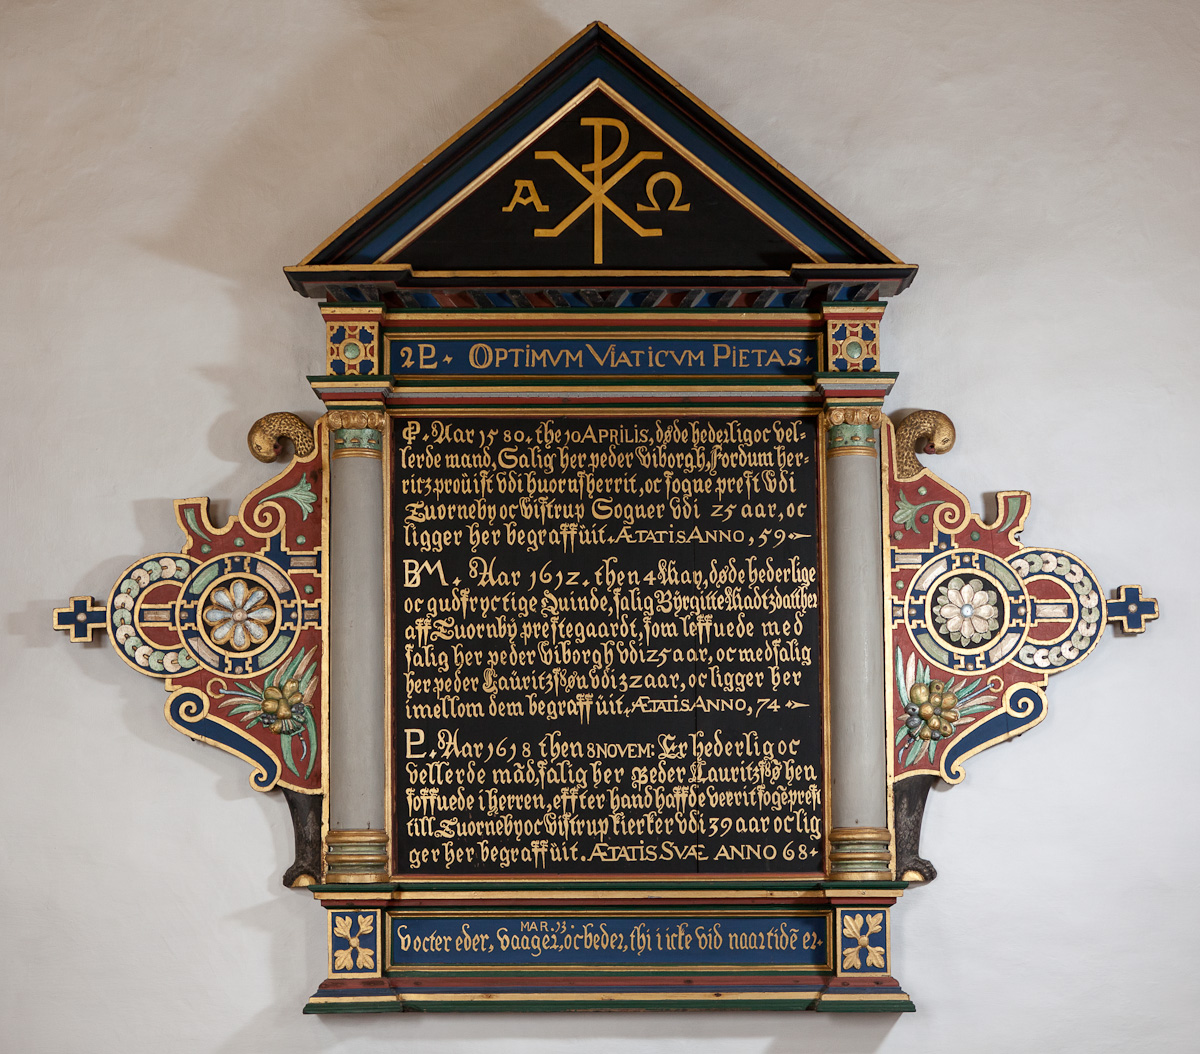 A P Ω
2P. OPTIMVM VIATICVM PIETAS.
P. Aar 1580. the 10 APRILIS, døde hederligoc vel-
lerde mand, Salig her peder Viborgh, Fordum her-
ritzproüist vdi huornsherrit, oc sogne prest Vdi
Tuornebyoc Vistrup Sogner Vdi 25 aar, oc
ligger her begraffüit. ÆTATIS ANNO, 59
BM. Aar 1612. then 4 May, døde hederlige
oc gudfryctige Quinde, salig Byrgitte Madtzdatther
aff Tuornby prestegaardt, som leffuede med
salig her peder Viborgh vdi 25 aar, oc med salig
her peder Lauritzsøn vdi 32 aar, oc ligger her
imellom dem begraffüit. ÆTATIS ANNO, 74
P. Aar 1618 then 8 NOVEM: Er hederlig oc
vellerde mād, salig her peder Lauritzsø hen
soffuede i herren, effter hand haffde verrit sogēprest
till Tuornebyoc Vistrup kierker vdi 39 aar oc lig
ger her begraffüit. ÆTATIS SVÆ ANNO 68
MAR. 13.
Vocter eder, Vaager, oc beder, thi i icke vid naar tidē er.